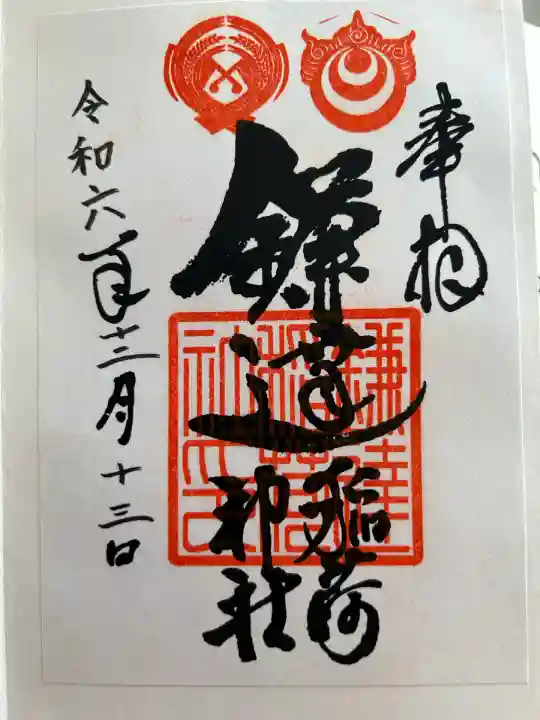 奉拝
鎌達
稲荷
神社
令和六年十二月十三日
鎌達
稲荷
神社